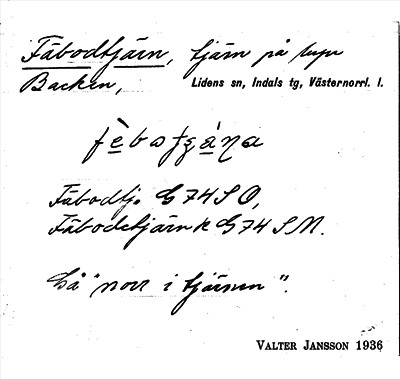 Fäbodtjärn, tjärn på
Backen, Lidens sn, Indals tg, Västernorrl. l.
Fäbodtj. G 74 S O,
Fäbodetjärn k G 74 S N.
Gå "norr i tjärnen".
VALTER JANSSON 1936